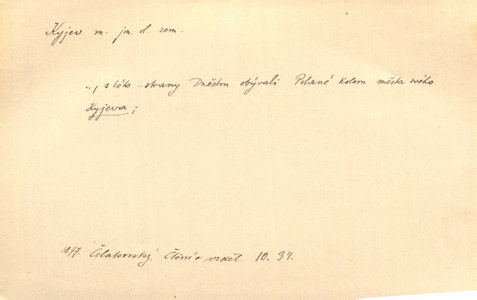 Kyjev m. jm. d. zem.
.., s této .. strany Dněstru obývali Polané kolem města svého
Kyjeva;
1877 Čelakovský, Čtení o vzděl. 10. 94.